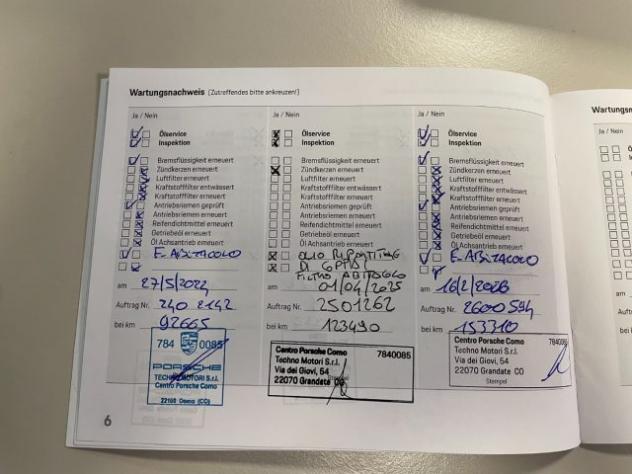 Wartungsnachweis (Zutreffendes bitte ankreuzen!)
Ja / Nein
Ölservice
Inspektion
Bremsflüssigkeit erneuert
Zündkerzen erneuert
Luftfilter erneuert
Kraftstofffilter entwässert
Kraftstofffilter erneuert
Antriebsriemen geprüft
Antriebsriemen erneuert
Reifendichtmittel erneuert
Getriebeöl erneuert
Öl Achsantrieb erneuert
F. ABITACOLO
am 27/5/2024
Auftrag Nr. 240 2142
bei km 92665
784 0085
PORSCHE
TECHNO MOTORI S.r.l.
Centro Porsche Como
22100 Como (CO)
Ja / Nein
Ölservice
Inspektion
Bremsflüssigkeit erneuert
Zündkerzen erneuert
Luftfilter erneuert
Kraftstofffilter entwässert
Kraftstofffilter erneuert
Antriebsriemen geprüft
Antriebsriemen erneuert
Reifendichtmittel erneuert
Getriebeöl erneuert
Öl Achsantrieb erneuert
OLIO
FILTRO
am 01/04/2025
Auftrag Nr. 2501262
bei km 123490
Centro Porsche Como 7840085
Techno Motori S.r.l.
Via dei Giovi, 54
22070 Grandate CO
Ja / Nein
Ölservice
Inspektion
Bremsflüssigkeit erneuert
Zündkerzen erneuert
Luftfilter erneuert
Kraftstofffilter entwässert
Kraftstofffilter erneuert
Antriebsriemen geprüft
Antriebsriemen erneuert
Reifendichtmittel erneuert
Getriebeöl erneuert
Öl Achsantrieb erneuert
F. ABITACOLO
am 16/2/2026
Auftrag Nr. 2600594
bei km 153310
Centro Porsche Como 7840085
Techno Motori S.r.l.
Via dei Giovi, 54
22070 Grandate CO
Stempel
6
Ja / Nein
am
bei km